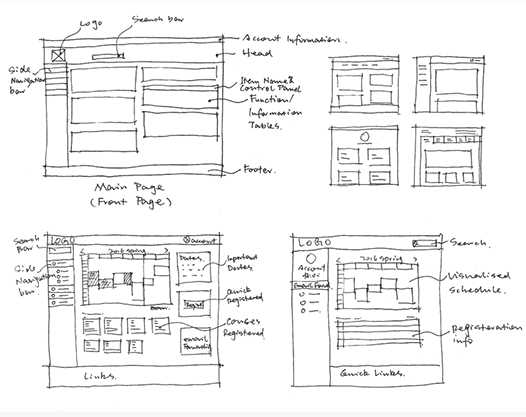 Logo
Search bar
Account Information.
Head
Side
Navigation
bar
Item Name &
Control Panel
Function/
Information
Tables.
Footer.
Main Page
(Front Page)
LOGO
account
Search
bar
Side
Navigation
bar
2016 spring
Dates
Important
Dates.
Quick
Registered
Courses
Registered
email
Links.
LOGO
Search.
Account
2016 spring
Visualised
Schedule.
Registeration
Info
Quick Links.